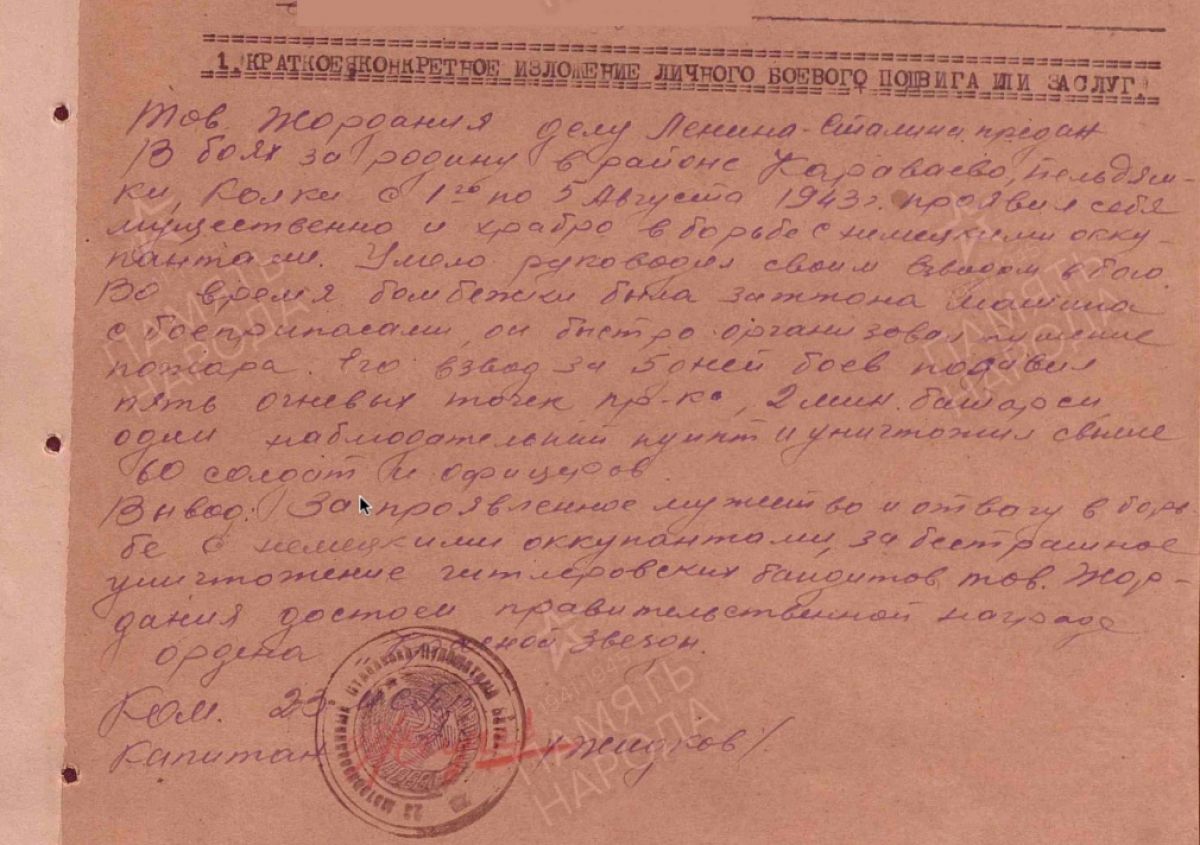 1. КРАТКОЕ КОНКРЕТНОЕ ИЗЛОЖЕНИЕ ЛИЧНОГО БОЕВОГО ПОДВИГА ИЛИ ЗАСЛУГ.
Тов. Жордания делу Ленина-Сталина предан
В боях за родину в районе Караваево, Пельдям-
ки, Колки с 1го по 5 Августа 1943 г. проявил себя
мущественно и храбро в борьбе с немецкими окку-
пантами. Умело руководил своим взводом в бою.
Во время бомбежки была зажтона машина
с боеприпасами, он быстро организовал тушение
пожара. Его взвод за 5 дней боев подавил
пять огневых точек пр-ка, 2 мин. батареи
один наблюдательный пункт и уничтожил свыше
60 солдат и офицеров
Вывод: За проявленное мужество и отвагу в борь-
бе с немецкими оккупантами, за бестрашное
уничтожение гитлеровских бандитов тов. Жор-
дания достоен правительственной награде
ордена "Красной Звезды.
Ком. 23
Капитан /Жидков/
ПАМЯТЬ НАРОДА
ПАМЯТЬ НАРОДА
1941-1945
ПАМЯТЬ НАРОДА